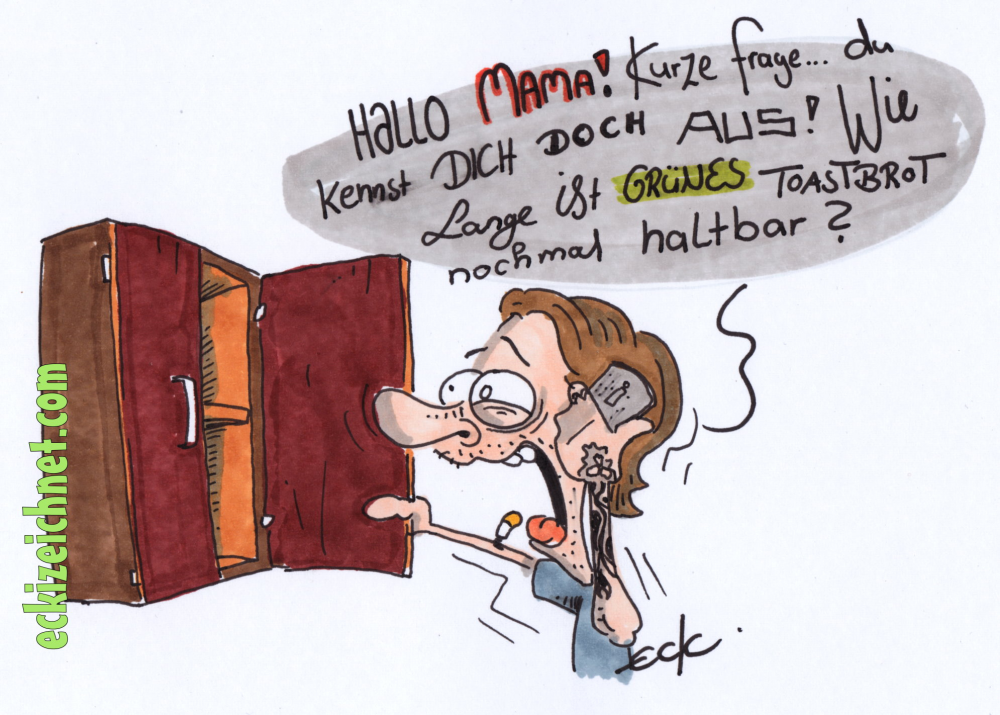 HALLO MAMA! Kurze frage... du
kennst DICH DOCH AUS! Wie
Lange ist GRÜNES TOASTBROT
nochmal haltbar?
eckizeichnet.com
ECK